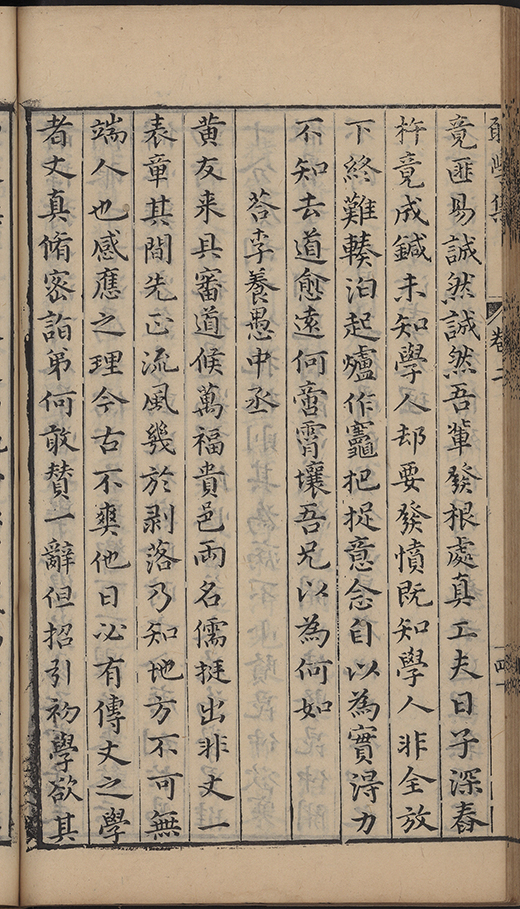 學集
卷二
竟匪易誠然誠然吾輩發根處真工夫日子深舂
杵竟成鍼未知學人却要發憤既知學人非全放
下終難輳泊起爐作竈把捉意念自以為實得力
不知去道愈遠何啻霄壤吾兄以為何如
荅李養愚中丞
黄友来具審道候萬福貴邑兩名儒挺出非丈一
表章其間先正流風幾於剥落乃知地方不可無
端人也感應之理今古不爽他日必有傳丈之學
者丈真脩密詣弟何敢贊一辭但招引初學欲其